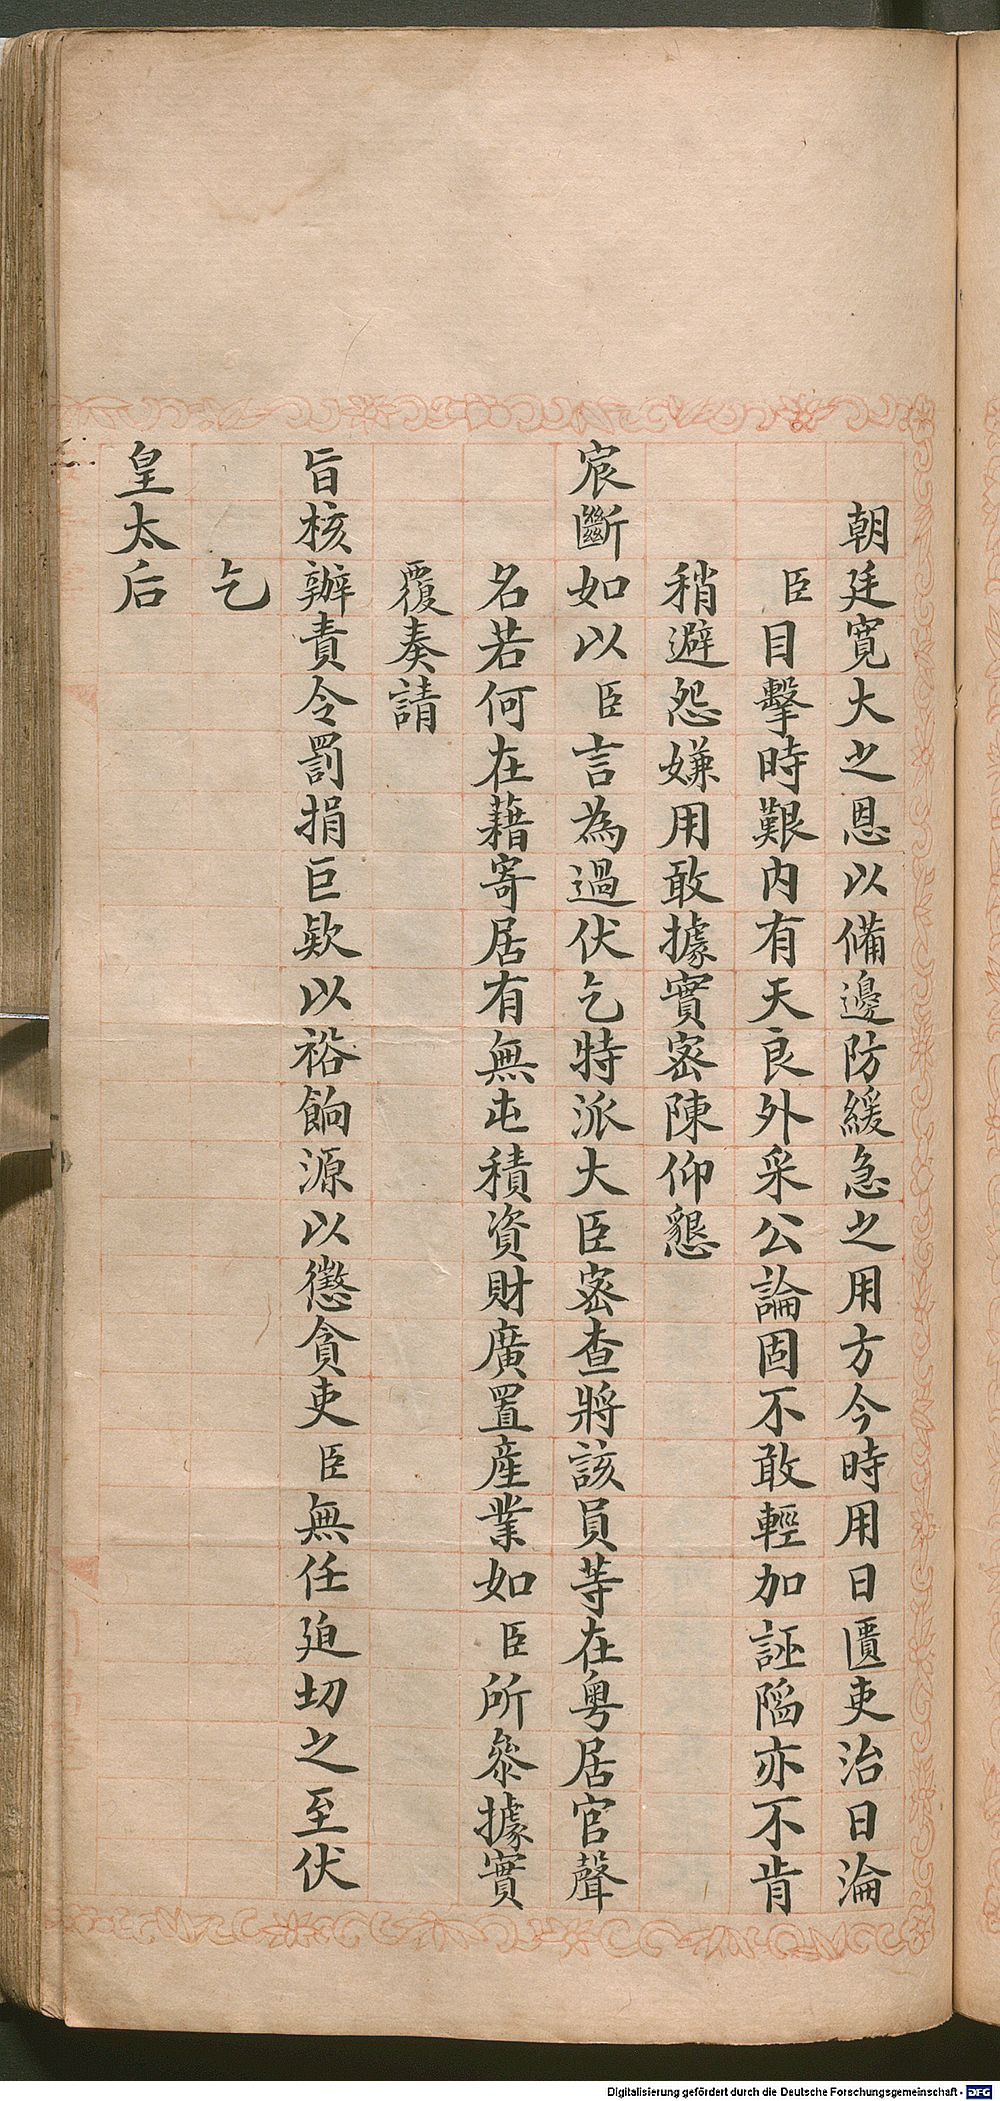 朝廷寛大之恩以備邊防緩急之用方今時用日匱吏治日淪
臣目擊時艱内有天良外采公論固不敢輕加誣陷亦不肯
稍避怨嫌用敢據實密陳仰懇
宸斷如以臣言為過伏乞特派大臣密查將該員等在粵居官聲
名若何在藉寄居有無屯積資財廣置産業如臣所叅據實
覆奏請
旨核辦責令罰捐巨欵以裕餉源以懲貪吏臣無任廹切之至伏
乞
皇太后
Digitalisierung gefördert durch die Deutsche Forschungsgemeinschaft - DFG